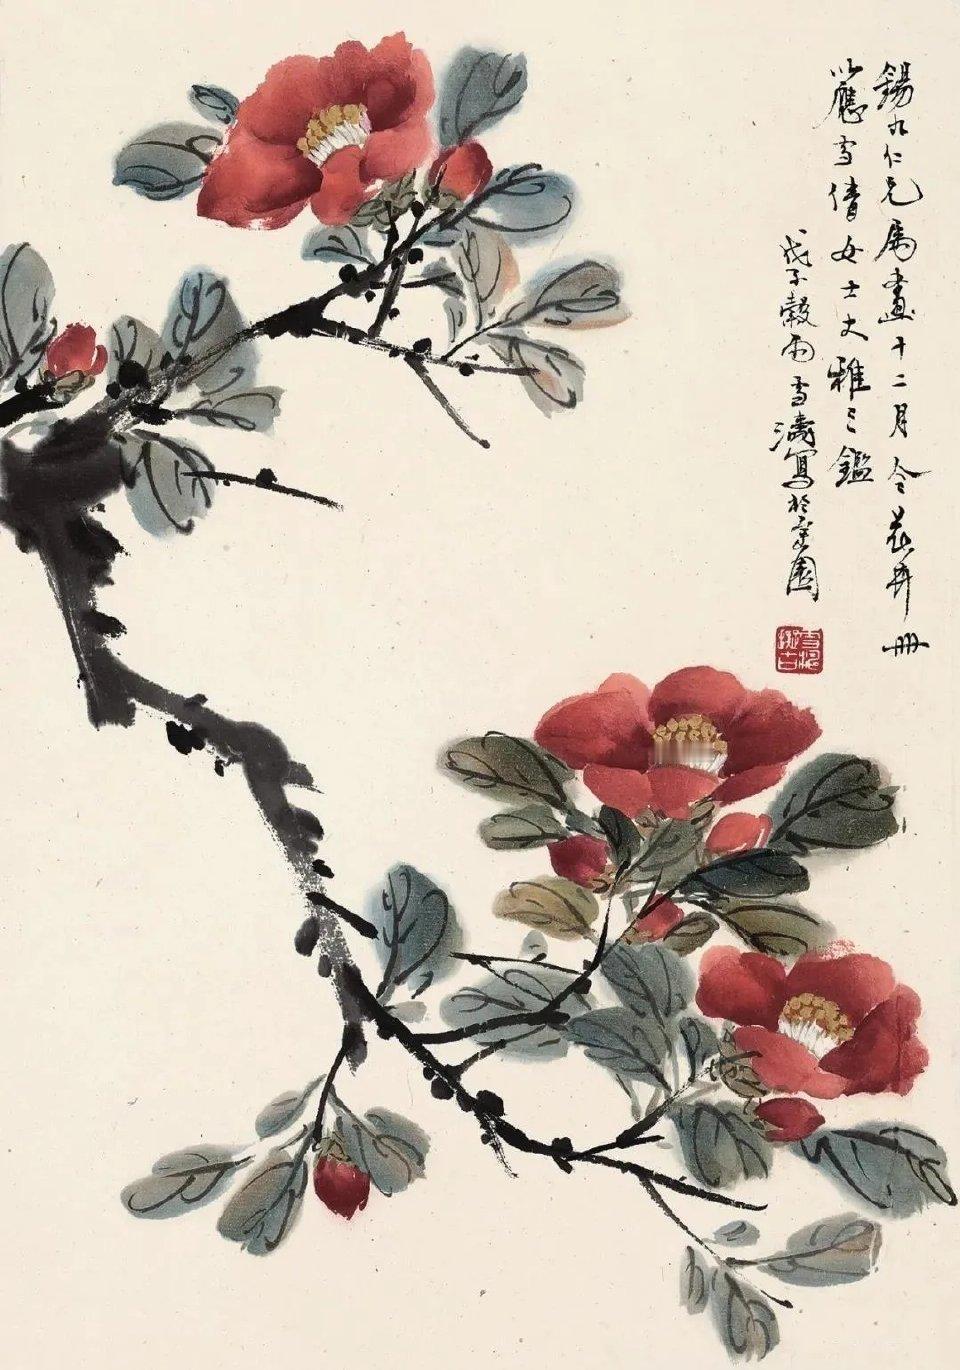 錫九仁兄属畫十二月令花卉册
以應雪倩女士大雅之鑑
戊子穀雨雪濤寫於京園